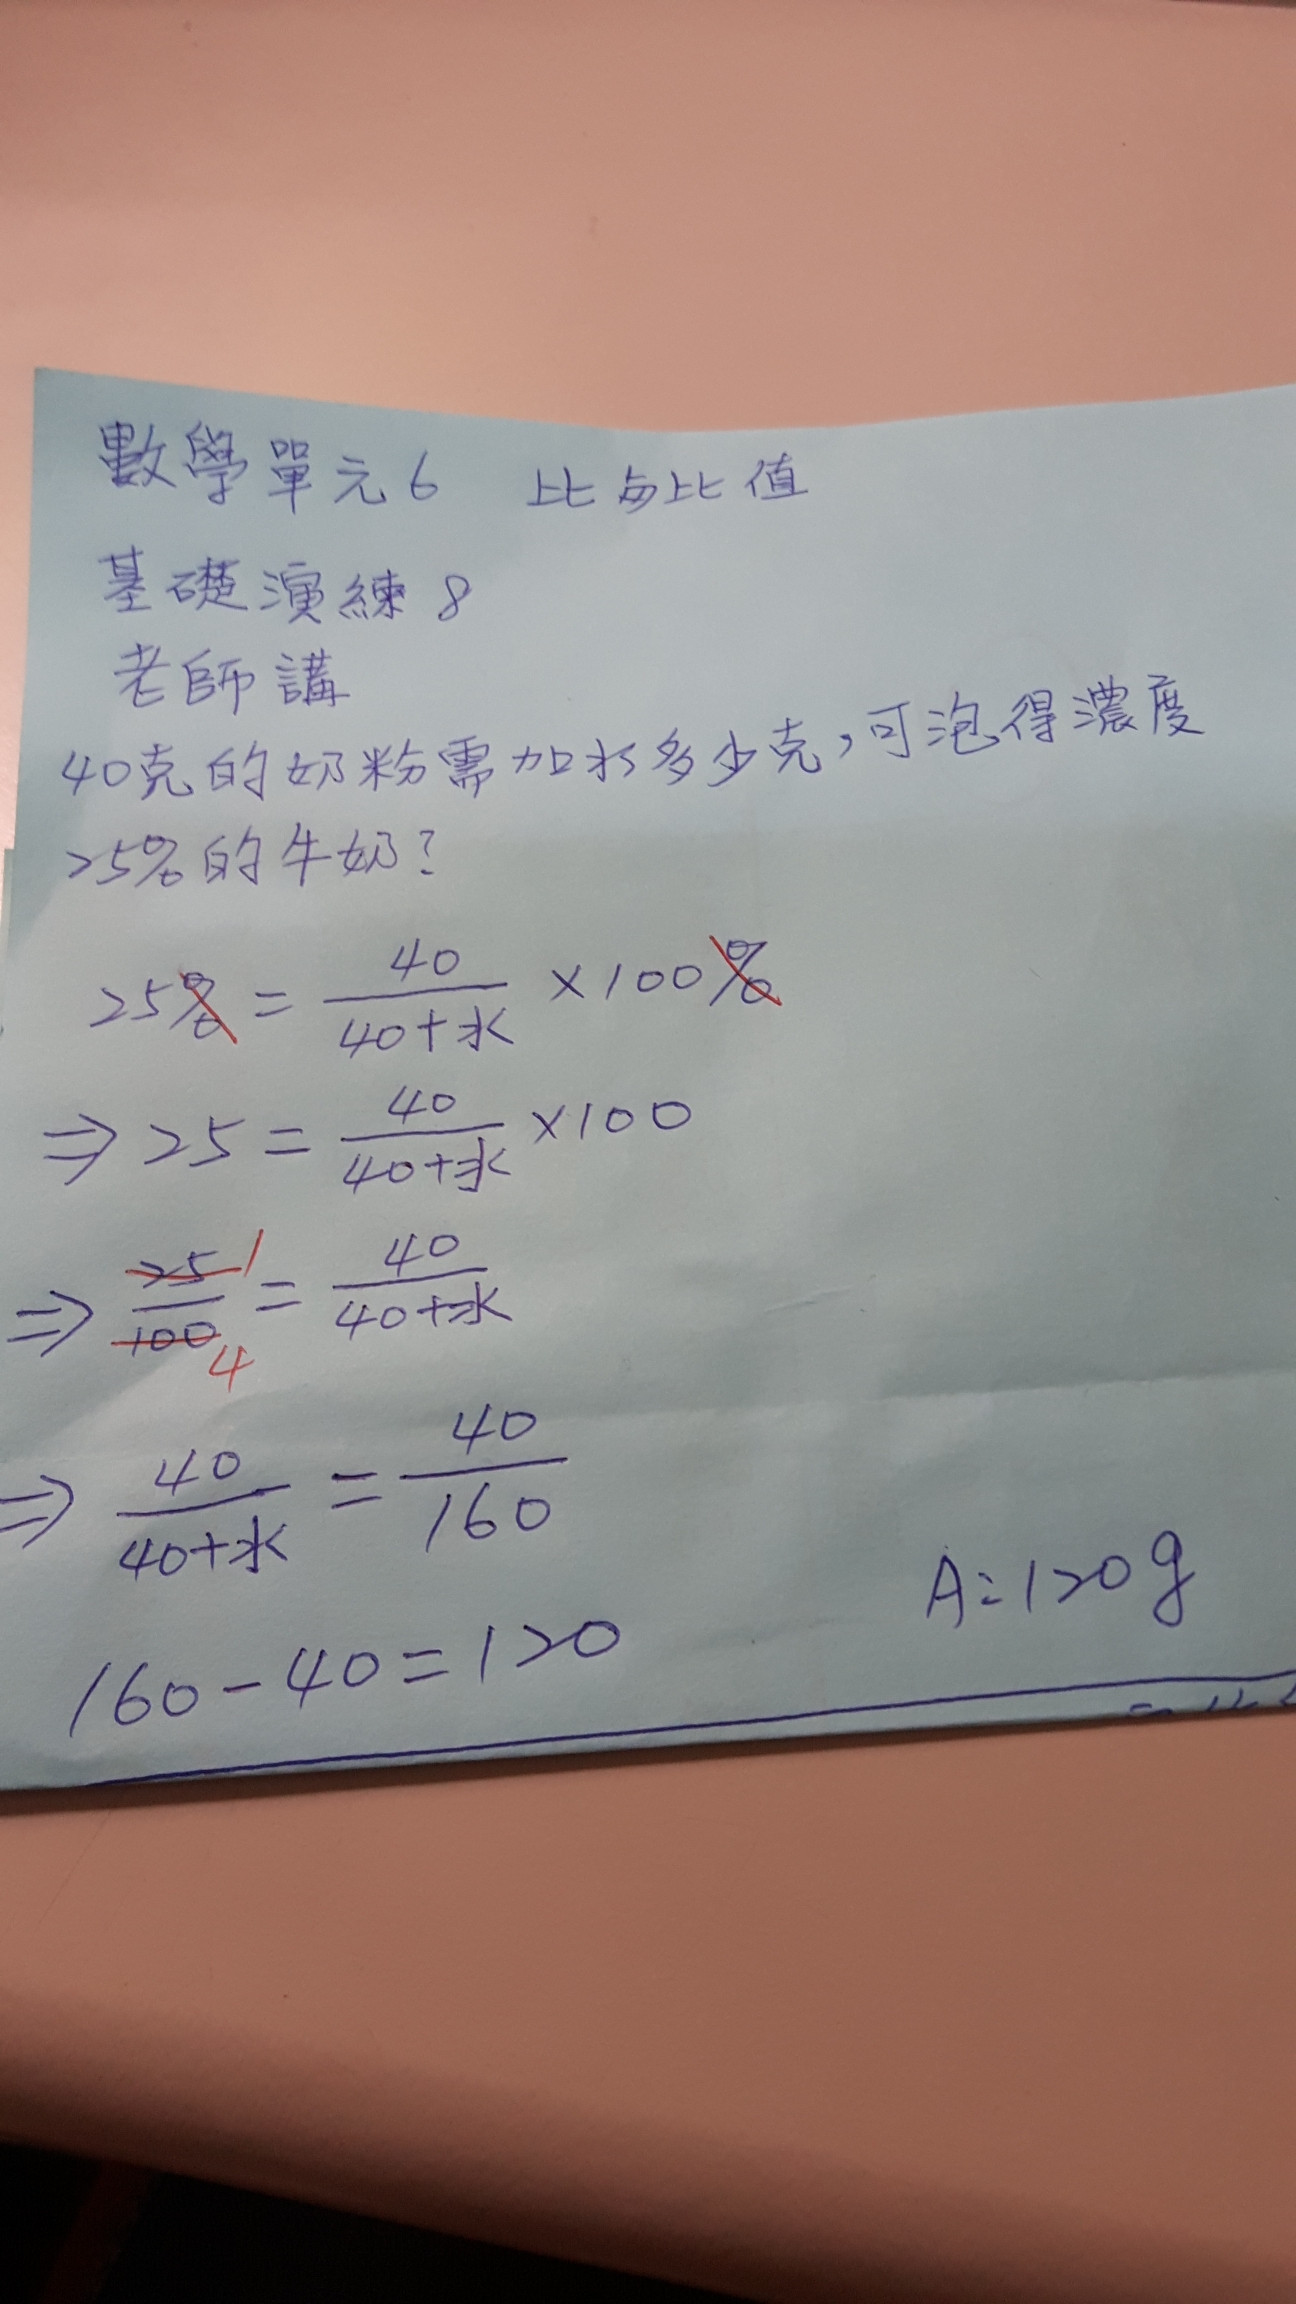 數學單元6 比與比值
基礎演練8
老師講
40克的奶粉需加水多少克,可泡得濃度
25%的牛奶?
25% = 40/(40+水) ×100%
⇒ 25 = 40/(40+水) ×100
⇒ 25/100 1/4 = 40/(40+水)
⇒ 40/(40+水) = 40/160
160-40=120
A:120g